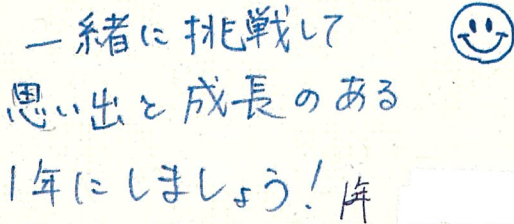 一緒に挑戦して
思い出と成長のある
1年にしましょう!